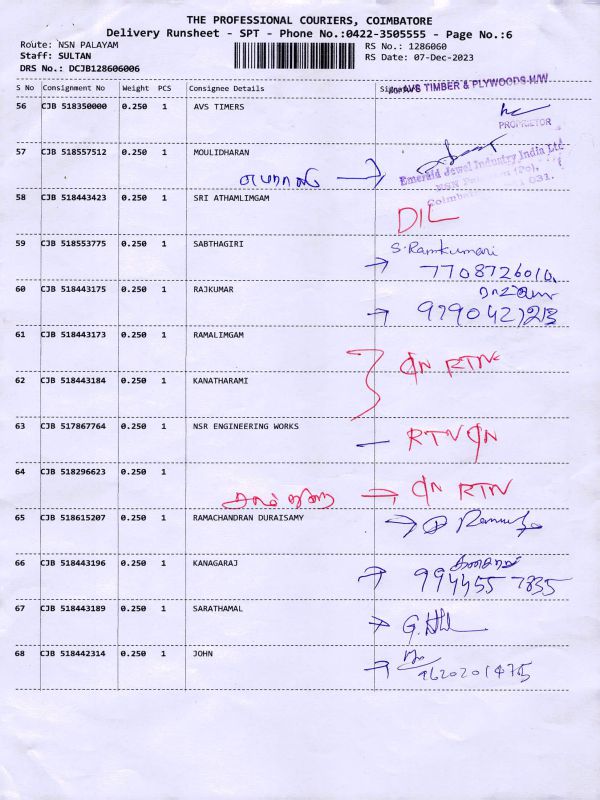 THE PROFESSIONAL COURIERS, COIMBATORE
Delivery Runsheet - SPT - Phone No.:0422-3505555 - Page No.:6
Route: NSN PALAYAM RS No.: 1286060
Staff: SULTAN RS Date: 07-Dec-2023
DRS No.: DCJB128606006
S No Consignment No Weight PCS Consignee Details
AVS TIMBER & PLYWOODS H/W
56 CJB 518350000 0.250 1 AVS TIMERS
PROPRIETOR
57 CJB 518557512 0.250 1 MOULIDHARAN
Emerald Jewel Industry India Ltd
58 CJB 518443423 0.250 1 SRI ATHAMLIMGAM
DIL
59 CJB 518553775 0.250 1 SABTHAGIRI S. Ramkumari
60 CJB 518443175 0.250 1 RAJKUMAR
61 CJB 518443173 0.250 1 RAMALIMGAM
RTN
62 CJB 518443184 0.250 1 KANATHARAMI
63 CJB 517867764 0.250 1 NSR ENGINEERING WORKS
RTN
64 CJB 518296623 0.250 1
RTN
65 CJB 518615207 0.250 1 RAMACHANDRAN DURAISAMY
66 CJB 518443196 0.250 1 KANAGARAJ
994455 7835
67 CJB 518443189 0.250 1 SARATHAMAL
68 CJB 518442314 0.250 1 JOHN